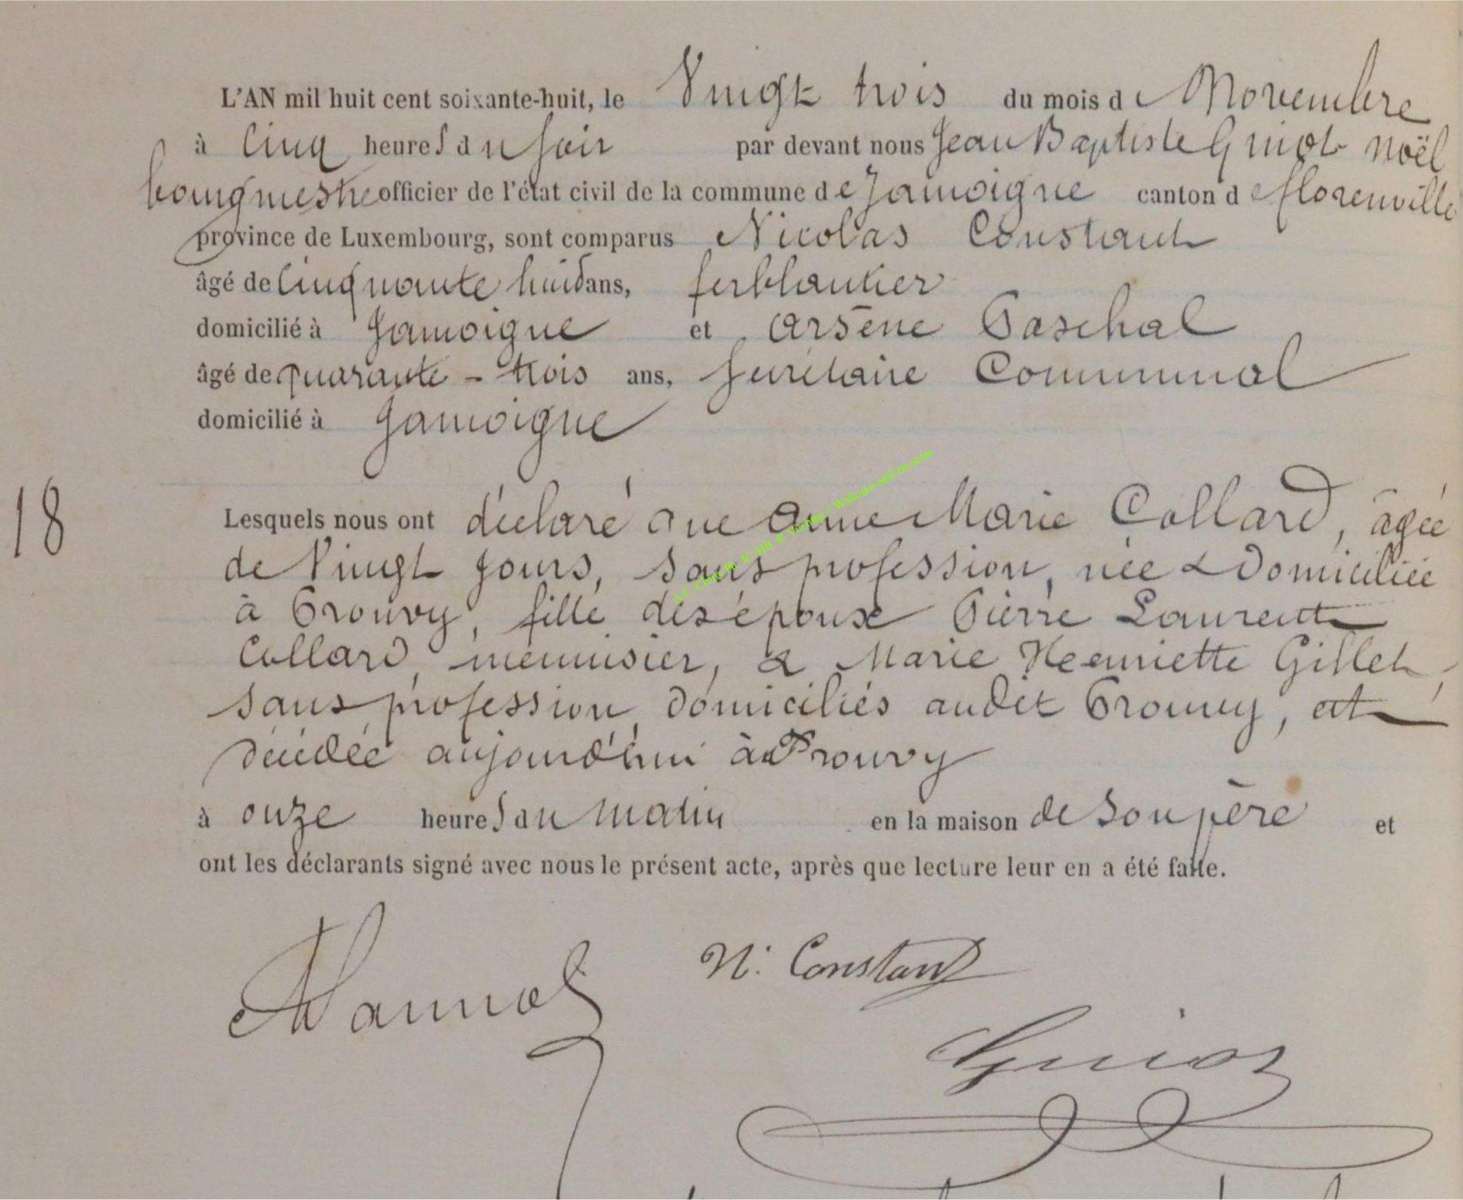 L'AN mil huit cent soixante-huit, le Vingt trois du mois de Novembre
à Cinq heures du soir par devant nous Jean Baptiste Guiot Noël
bourgmestre officier de l'état civil de la commune de Jamoigne canton de florenville
province de Luxembourg, sont comparus Nicolas Constant
âgé de Cinquante huit ans, ferblantier
domicilié à Jamoigne et Arsène Paschal
âgé de quarante - trois ans, secrétaire Communal
domicilié à Jamoigne
18
Lesquels nous ont déclaré que Anne Marie Collard, âgée
de Vingt jours, sans profession, née & Domiciliée
à Prouvy, fille des époux Pierre Laurent
Collard, menuisier, & Marie Henriette Gillet,
sans profession, domiciliés audit Prouvy, est
décédée aujourd'hui à Prouvy
à onze heures du matin en la maison de son père et
ont les déclarants signé avec nous le présent acte, après que lecture leur en a été faite.
N. Constant
Guiot